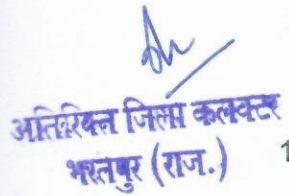 अतिरिक्त जिला कलक्टर
भरतपुर (राज.)
1